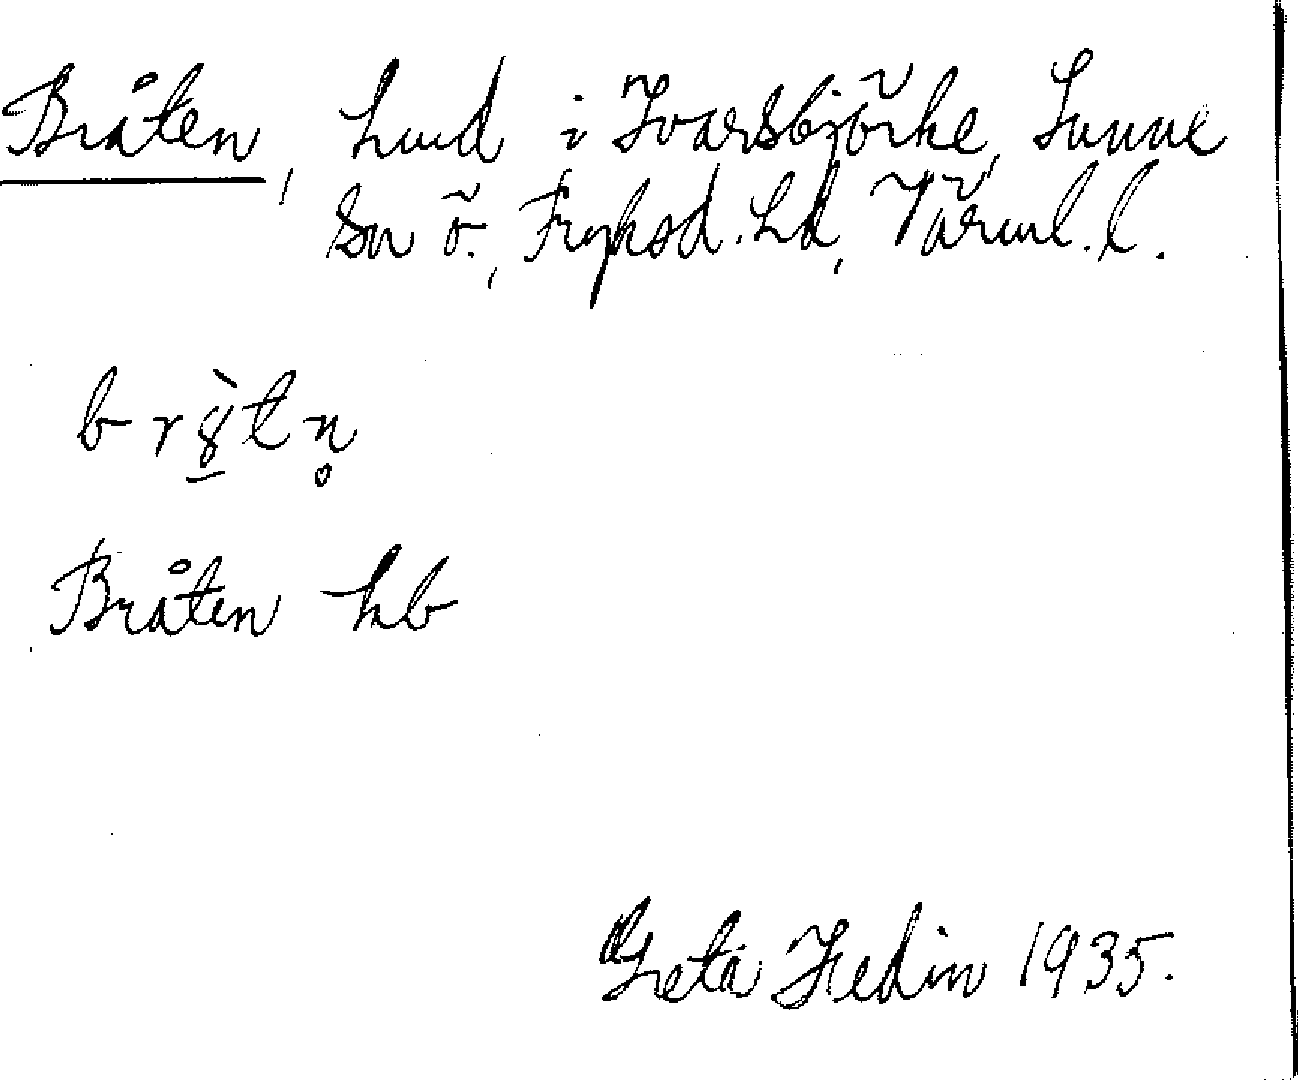 Bråten, hmd i Ivarsbjörke, Sunne
Sn ö., Fryksd. hd, Värml. l.
br8̱̀tn̥
Bråten hb
Greta Hedin 1935.